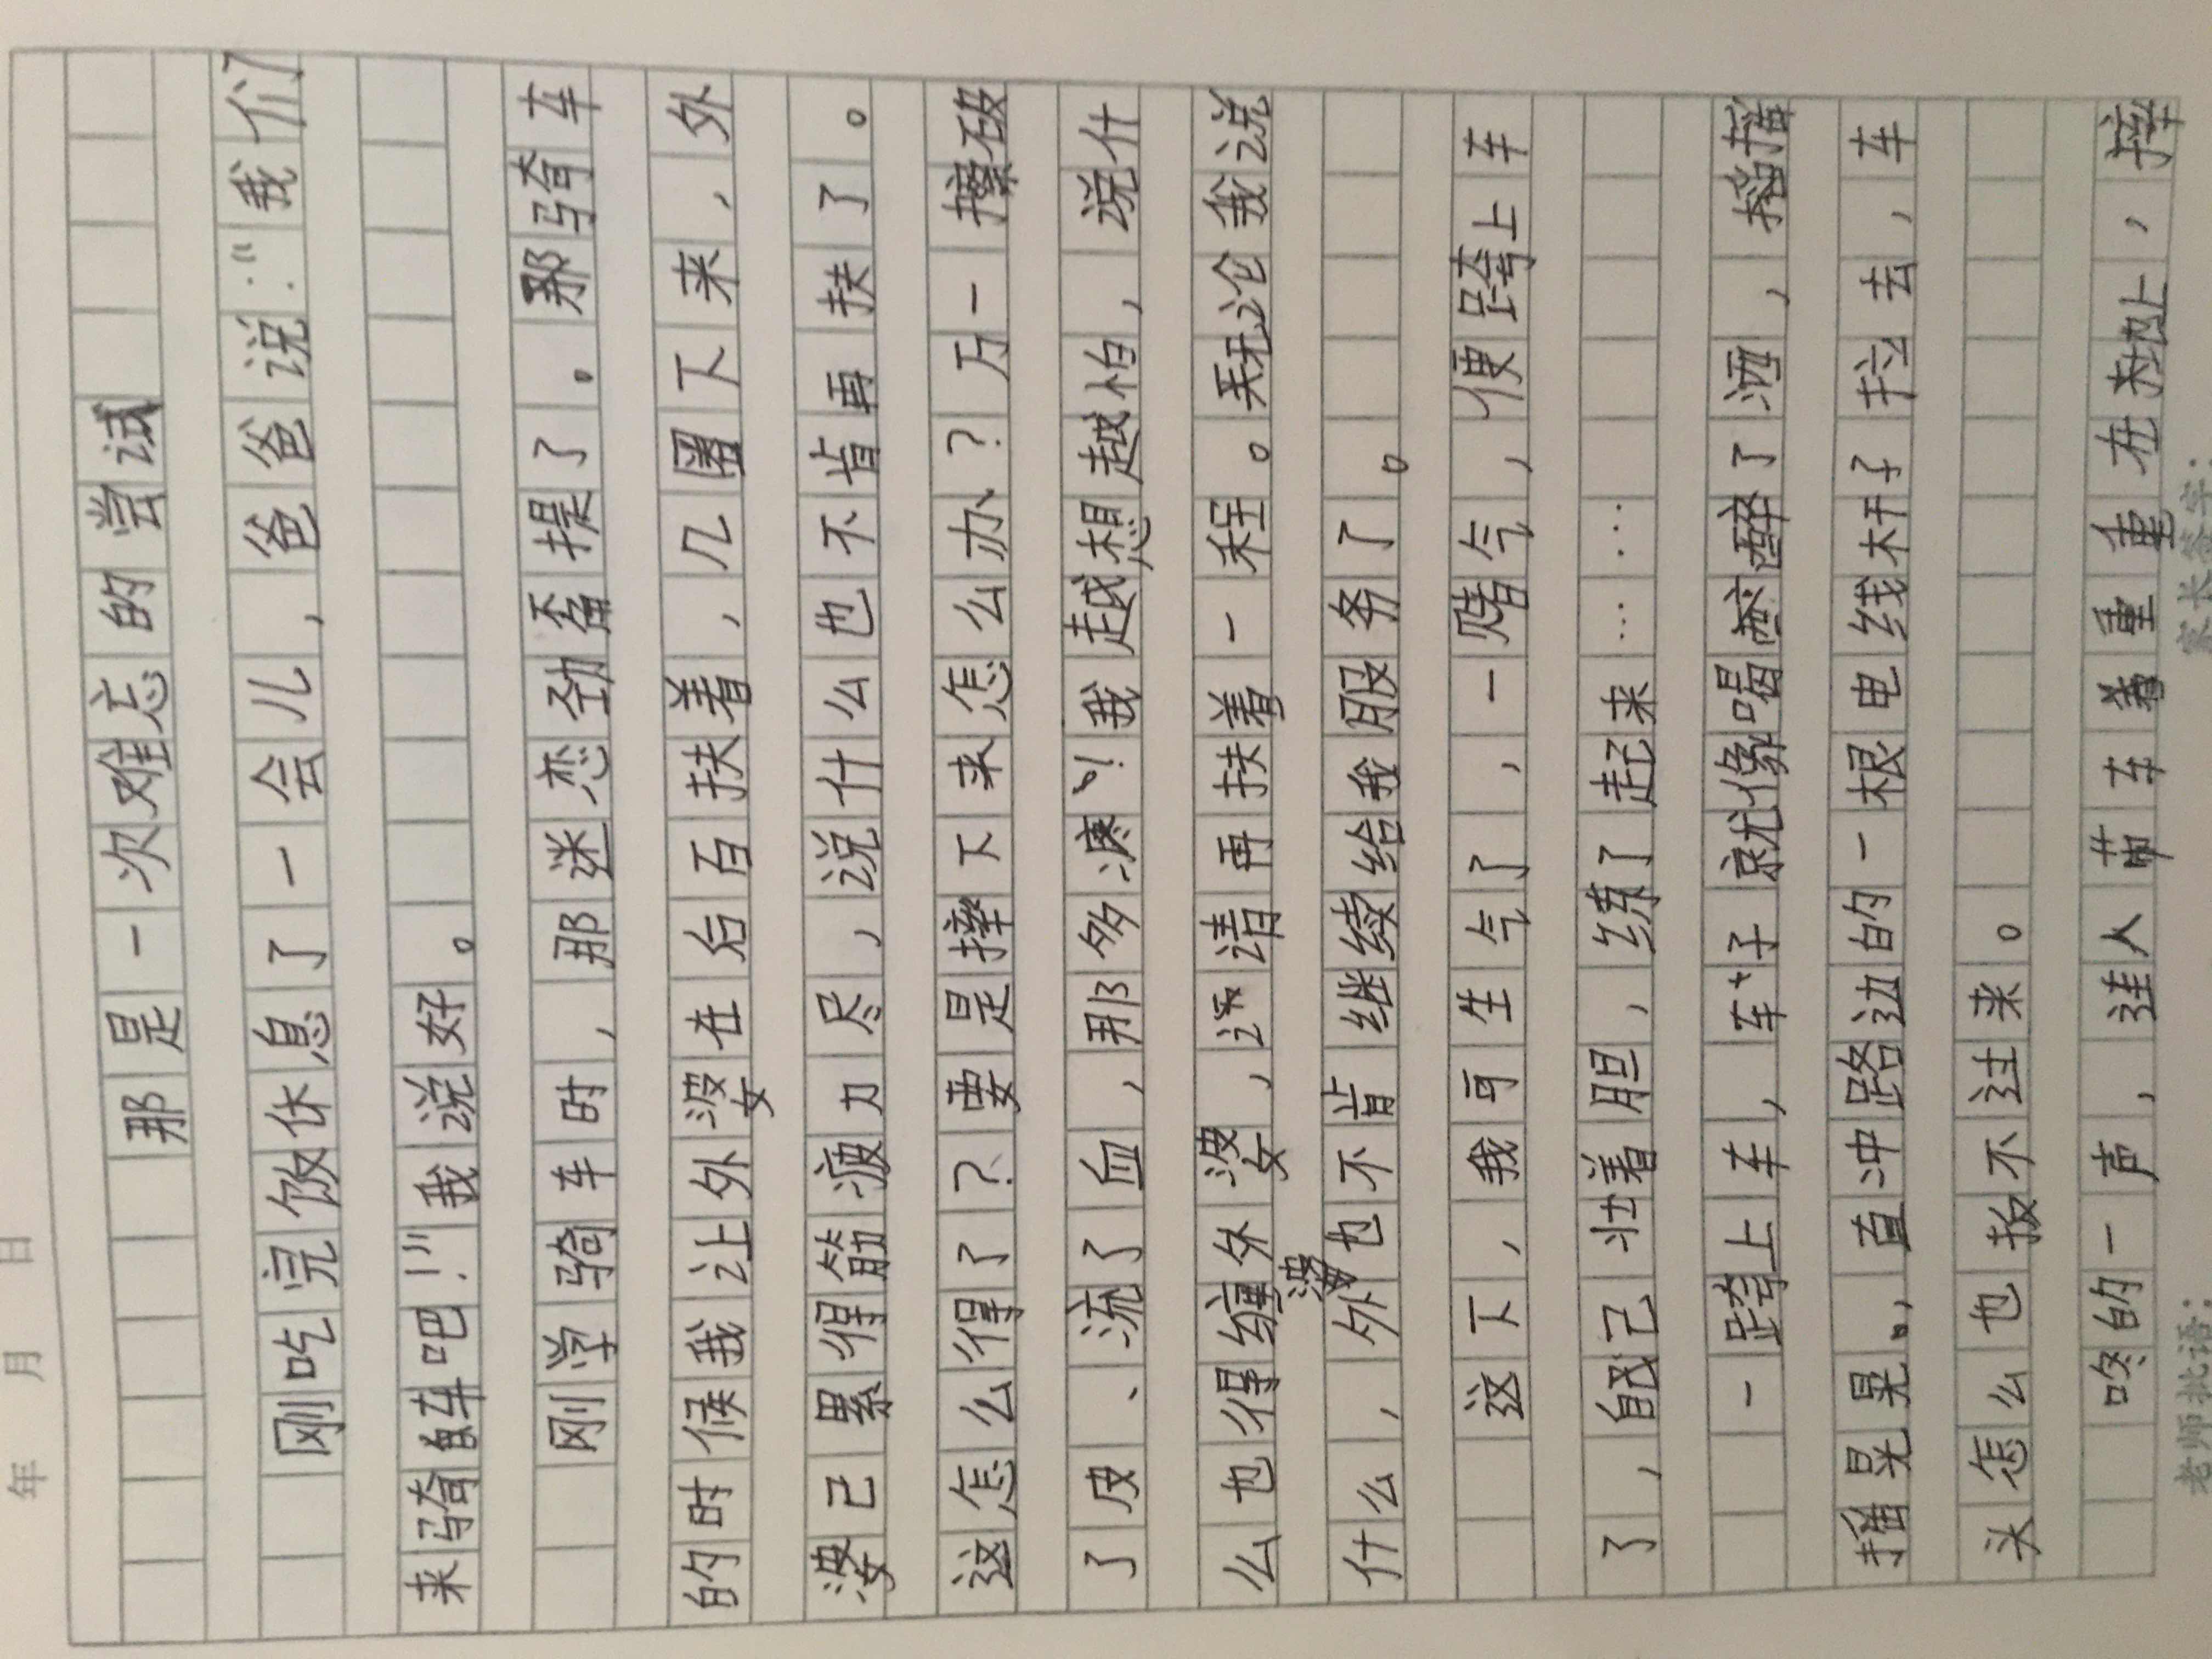 年 月 日
那是一次难忘的尝试
刚吃完饭休息了一会儿，爸爸说：“我们
来骑自车吧！”我说好。
刚学骑车时，那迷恋劲甭提了。那骑车
的时候我让外婆在后百扶着，几圈下来，外
婆己累得筋疲力尽，说什么也不肯再扶了。
这怎么得了？要是摔下来怎么办？万一擦破
了皮、流了血，那多凄！我越想越怕，说什
么也得缠外婆，请再扶着一程。无论我说
什么，外婆也不肯继续给我服务了。
这下，我可生气了，一赌气，便跨上车
了，自己壮着胆，练了起来……
一跨上车，车子就像喝醉了酒，摇摇
摇晃晃。，直冲路边的一根电线杆子拉去，车
头怎么也扳不过来。
咚的一声，连人带车重重在地上，摔
老师批语： 家长签字：